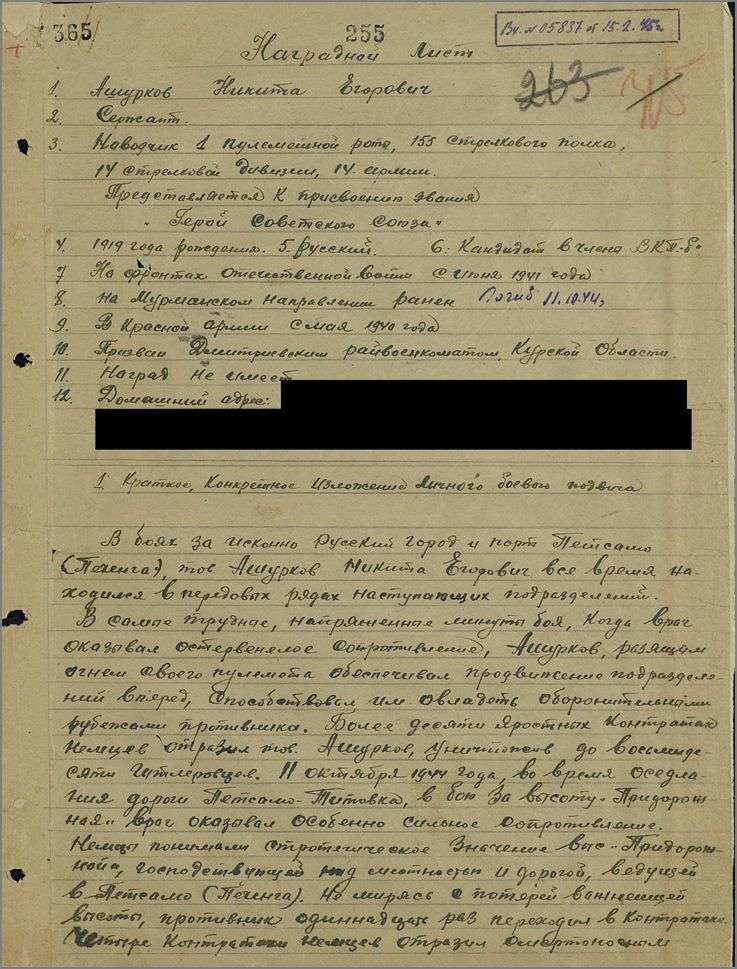 365 255 Вх. № 05837 от 15.2.45г
Наградной Лист
263
1. Ашурков Никита Егорович
2. Сержант.
3. Наводчик 1 пулеметной роты, 155 стрелкового полка,
14 стрелковой дивизии, 14 армии.
Представляется к присвоению звания
„Герой Советского Союза“
4. 1919 года рождения. 5. Русский. 6. Кандидат в члена ВКП-б"
7 На фронтах отечественной войны с июня 1941 года
8. На Мурманском направлении ранен Погиб 11.10.44г
9. В Красной армии с мая 1940 года
10. Призван Дмитриевским райвоенкоматом, Курской области.
11. Наград не имеет
12. Домашний адрес:
1 Краткое, конкретное изложение личного боевого подвига
В боях за исконно русский город и порт Петсамо
(Печенга), тов. Ашурков Никита Егорович все время на-
ходился в передовых рядах наступающих подразделений.
В самые трудные, напряженные минуты боя, когда враг
оказывал остервенелое сопротивление, Ашурков, разящим
огнем своего пулемета обеспечивал продвижение подразделе-
ний вперед, способствовал им овладеть оборонительными
рубежами противника. Более десяти яростных контратак
немцев отразил тов. Ашурков, уничтожив до восьмиде-
сяти гитлеровцев. 11 октября 1944 года, во время оседла-
ния дороги Петсамо-Титовка, в бою за высоту „Придорож-
ная" враг оказывал особенно сильное сопротивление.
Немцы понимали стратегическое значение выс „Придорож-
ной", господствующей над местностью и дорогой, ведущей
в Петсамо (Печенга). Не мирясь с потерей важнейшей
высоты, противник одиннадцать раз переходил в контратаки.
Четыре контратаки немцев отразил смертоносным